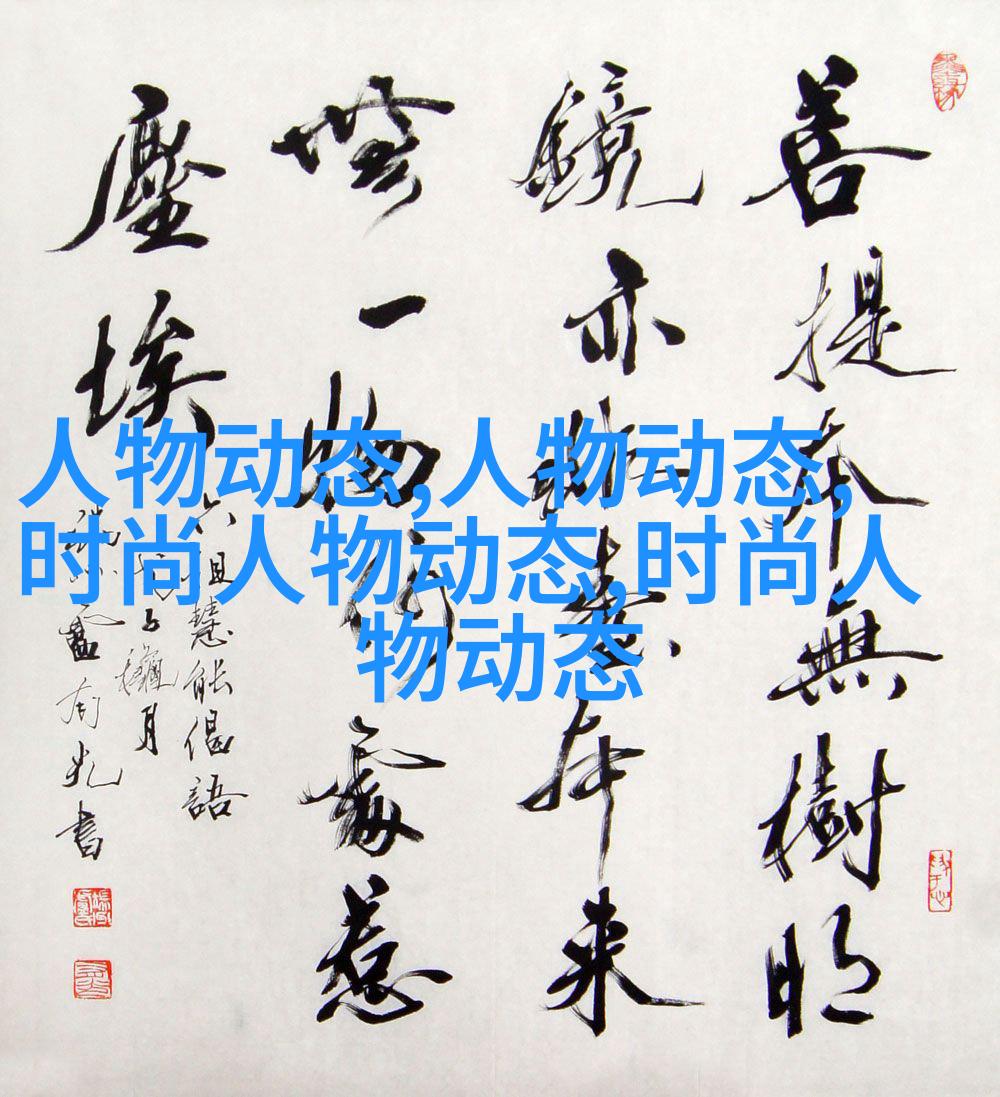 菩提本無樹明
鏡亦非臺本来
無一物何處惹
塵埃
六祖慧能偈語
月
書
人物动态,人物动态,
时尚人物动态,时尚人
物动态